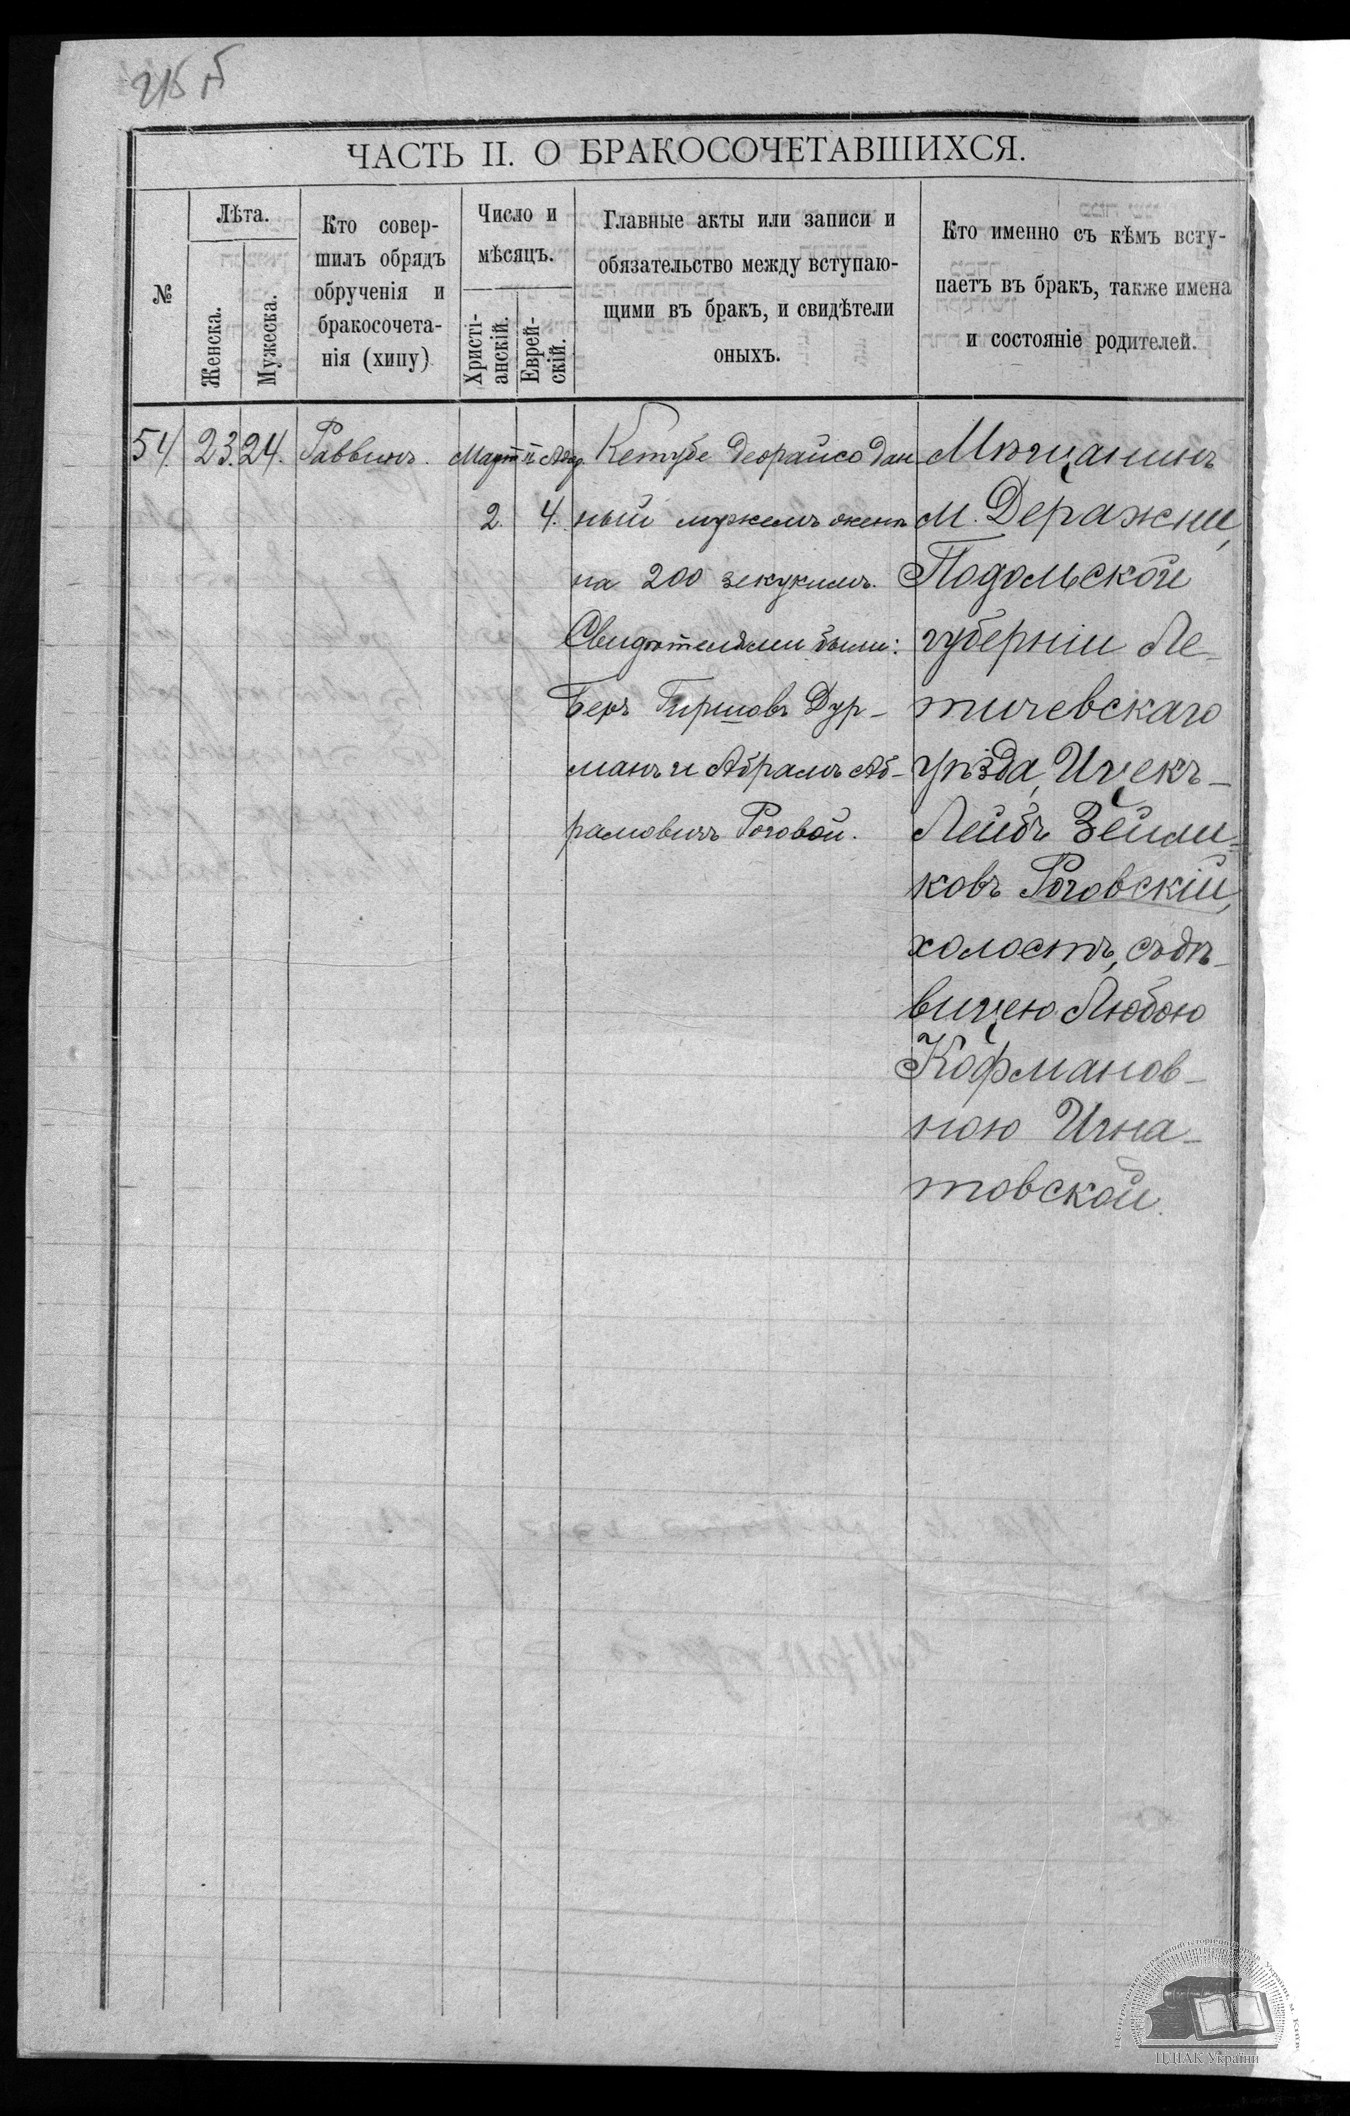 215
ЧАСТЬ II. О БРАКОСОЧЕТАВШИХСЯ.
№
Лѣта.
Женска.
Мужеска.
Кто совер-
шилъ обрядъ
обрученія и
бракосочета-
нія (хипу)
Число и
мѣсяцъ.
Христі-
анскій.
Еврей-
скій.
Главные акты или записи и
обязательство между вступаю-
щими въ бракъ, и свидѣтели
оныхъ.
Кто именно съ кѣмъ всту-
паетъ въ бракъ, также имена
и состояніе родителей.
54.
23.
24.
Раввинъ.
Мартъ
2.
II Адар
4.
Кетубе деорайсо дан-
ный мужемъ женѣ
на 200 зекукимъ.
Свидѣтелями были:
Беръ Гиршовъ Дур-
манъ и Абрамъ Аб-
рамовичъ Роговой.
Мѣщанинъ
м. Деражни,
Подольской
губерніи Ле-
тичевскаго
уѣзда, Ицекъ-
Лейбъ Зейли-
ковъ Роговскій,
холостъ, съ дѣ-
вицею Любою
Кофманов-
ною Игна-
товской.
ЦДІАК України